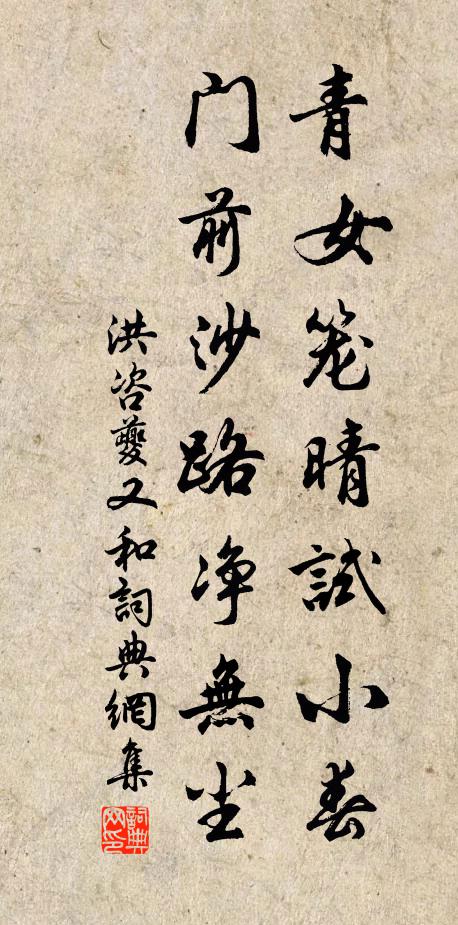 青女笼晴試小春
门前沙路净無尘
洪咨夔又和詞典網集
詞典网印